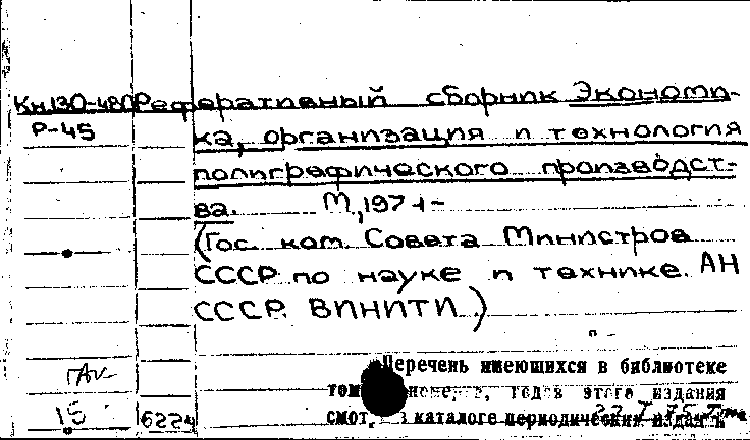 Кн130-480 Реферативный сборник Экономи-
Р-45 ка, организация и технология
полиграфического производст-
ва. М, 1971-
(Гос. ком. Совета Министров
СССР по науке и технике. АН
СССР. ВИНИТИ.)
Перечень имеющихся в библиотеке
годов этого издания
15 6224 смот, в каталоге периодических